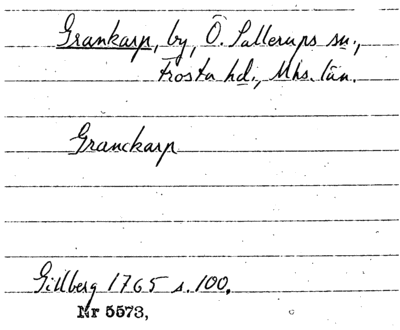 Grankarp, by, Ö. Sallerups sn.,
Frosta hd., Mhs. län.
Granckarp
Gillberg 1765 s. 100.
Nr 5573,